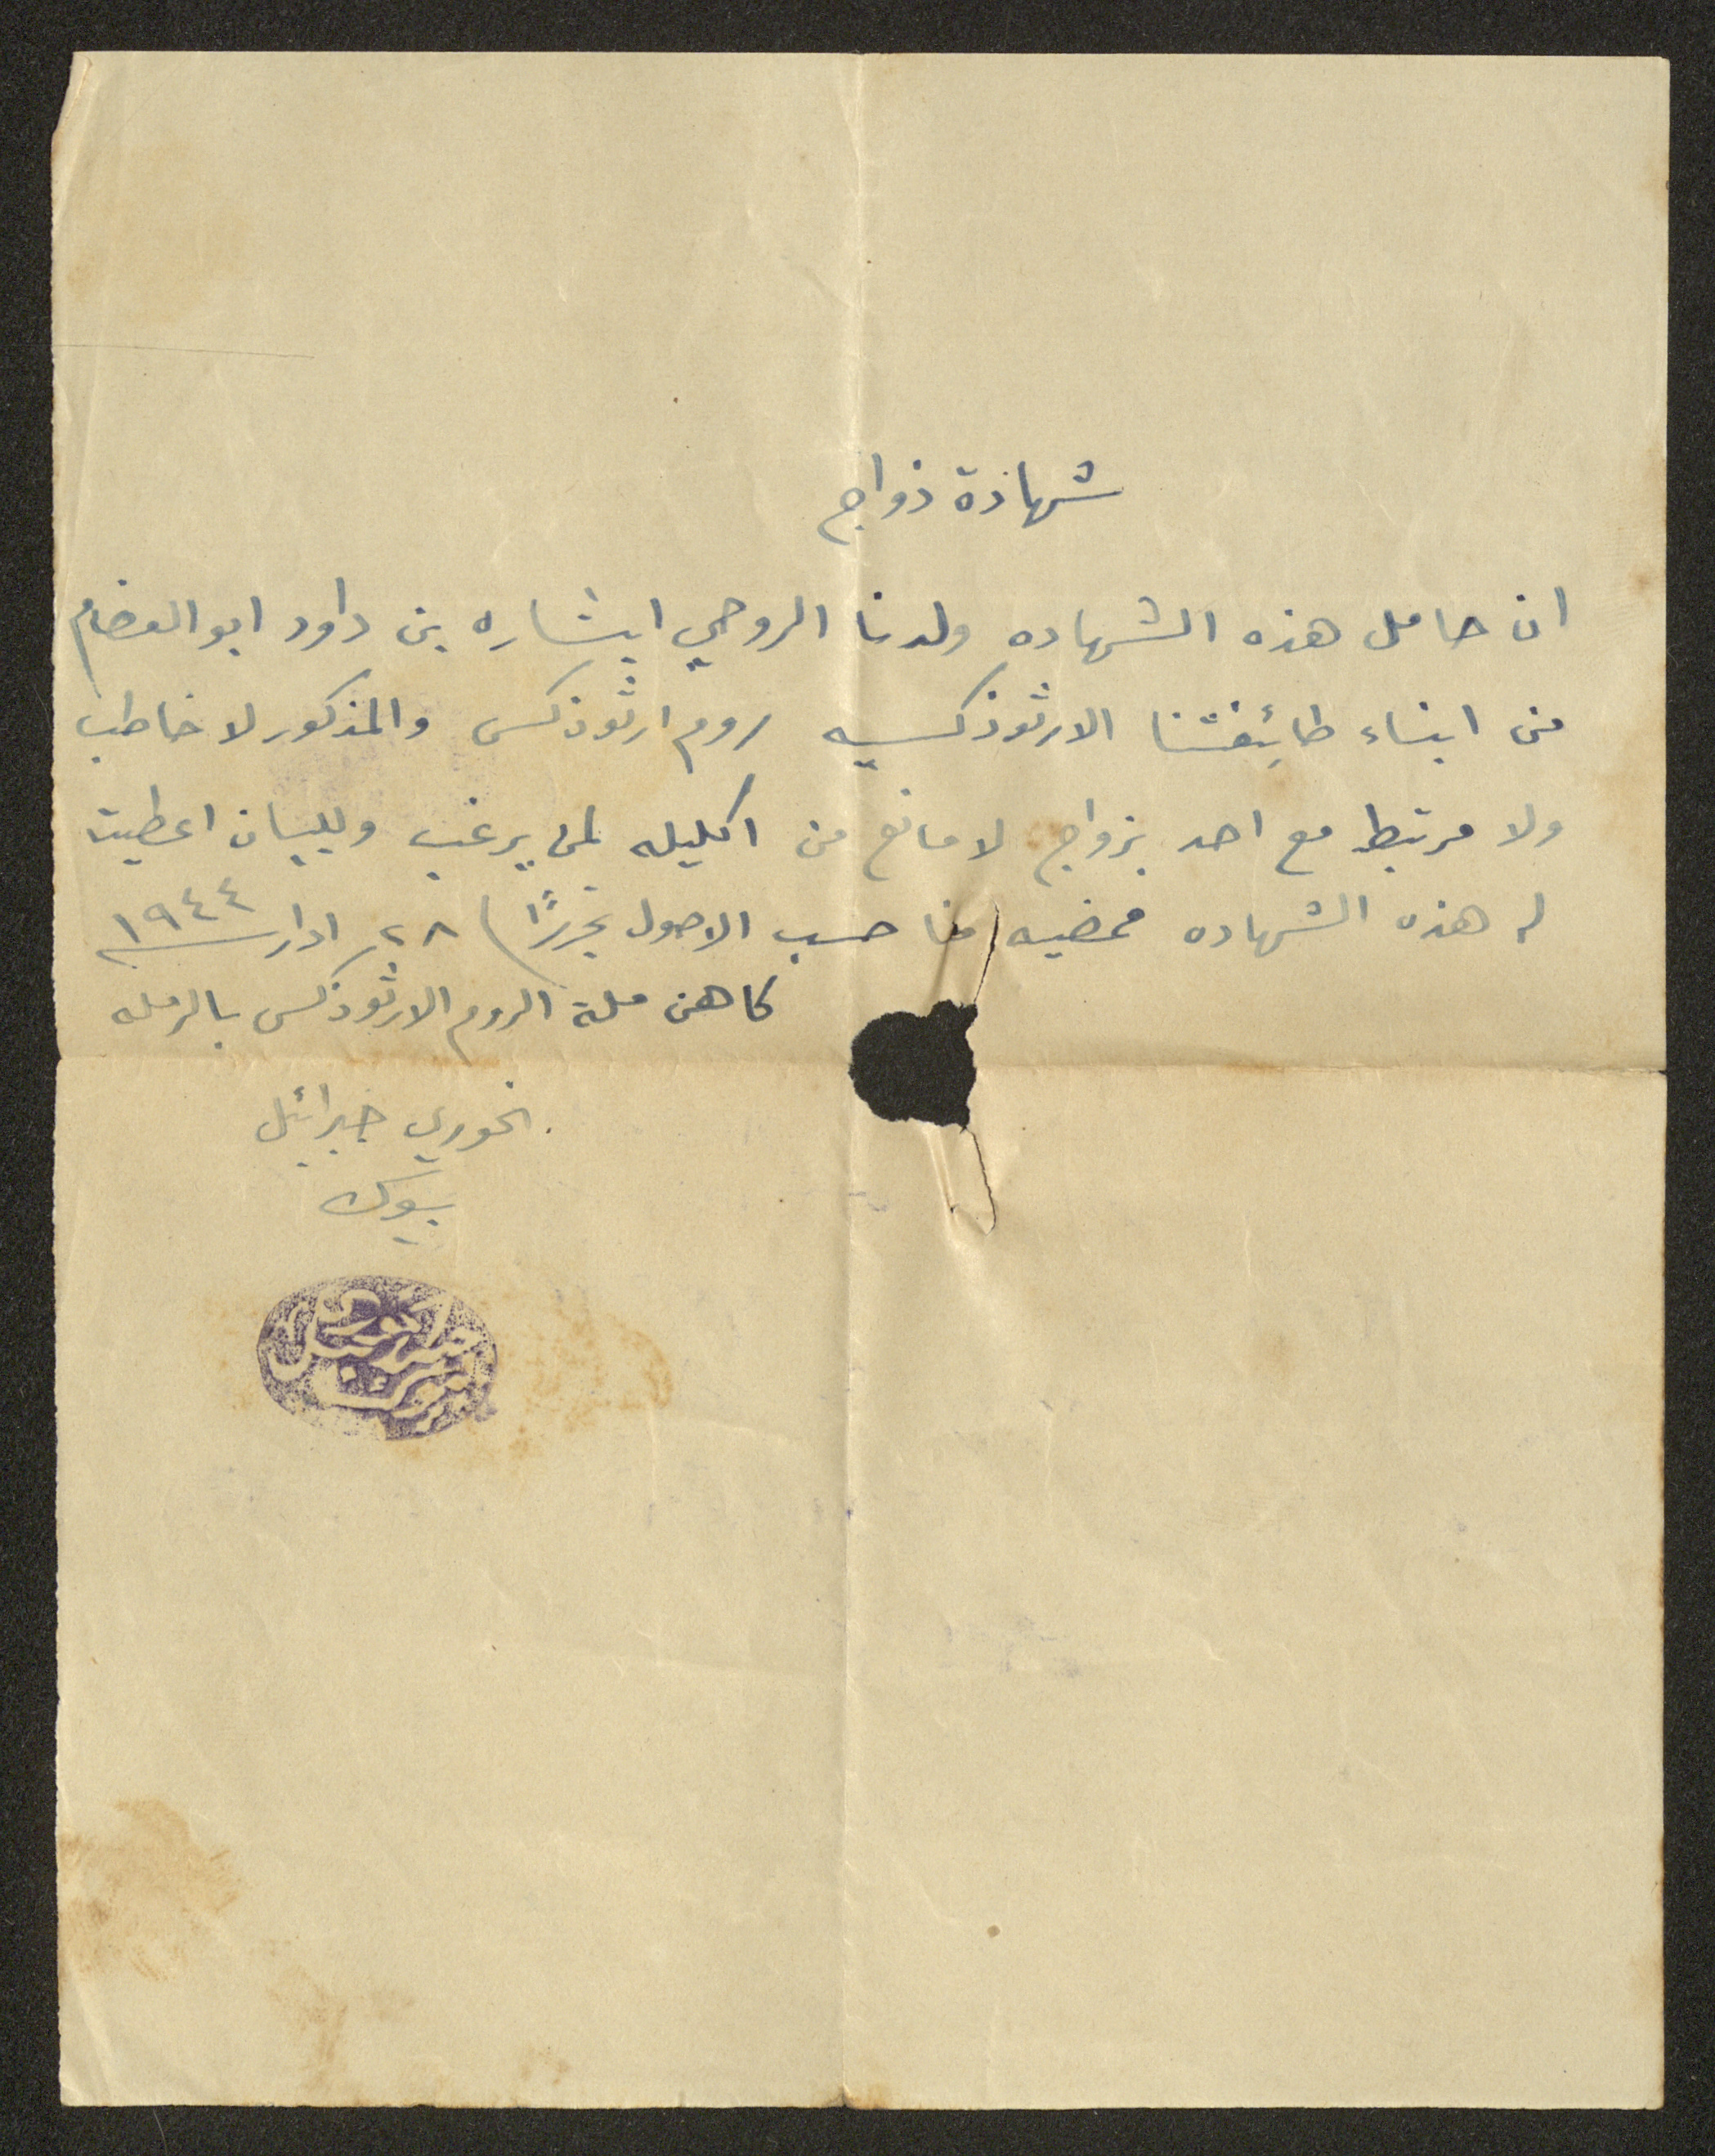 شهاذة ذواج
ان حامل هذه الشهاده ولدنا الروحي ابشاره بن داود ابو العضام
من ابناء طائِفتنا الارثوذكسيه روم ارثوذكس والمذكور لا خاطب
ولا مرتبط مع احد بزواج لا مانع من اكليله لمن يرغب وللبيان اعطيت
له هذه الشهاده ممضيه منا حسب الاصول تحريرًا ٢٨ اذار ١٩٤٤
كاهن ملة الروم الارثوذكس بالرمله
الخوري جبرائيل